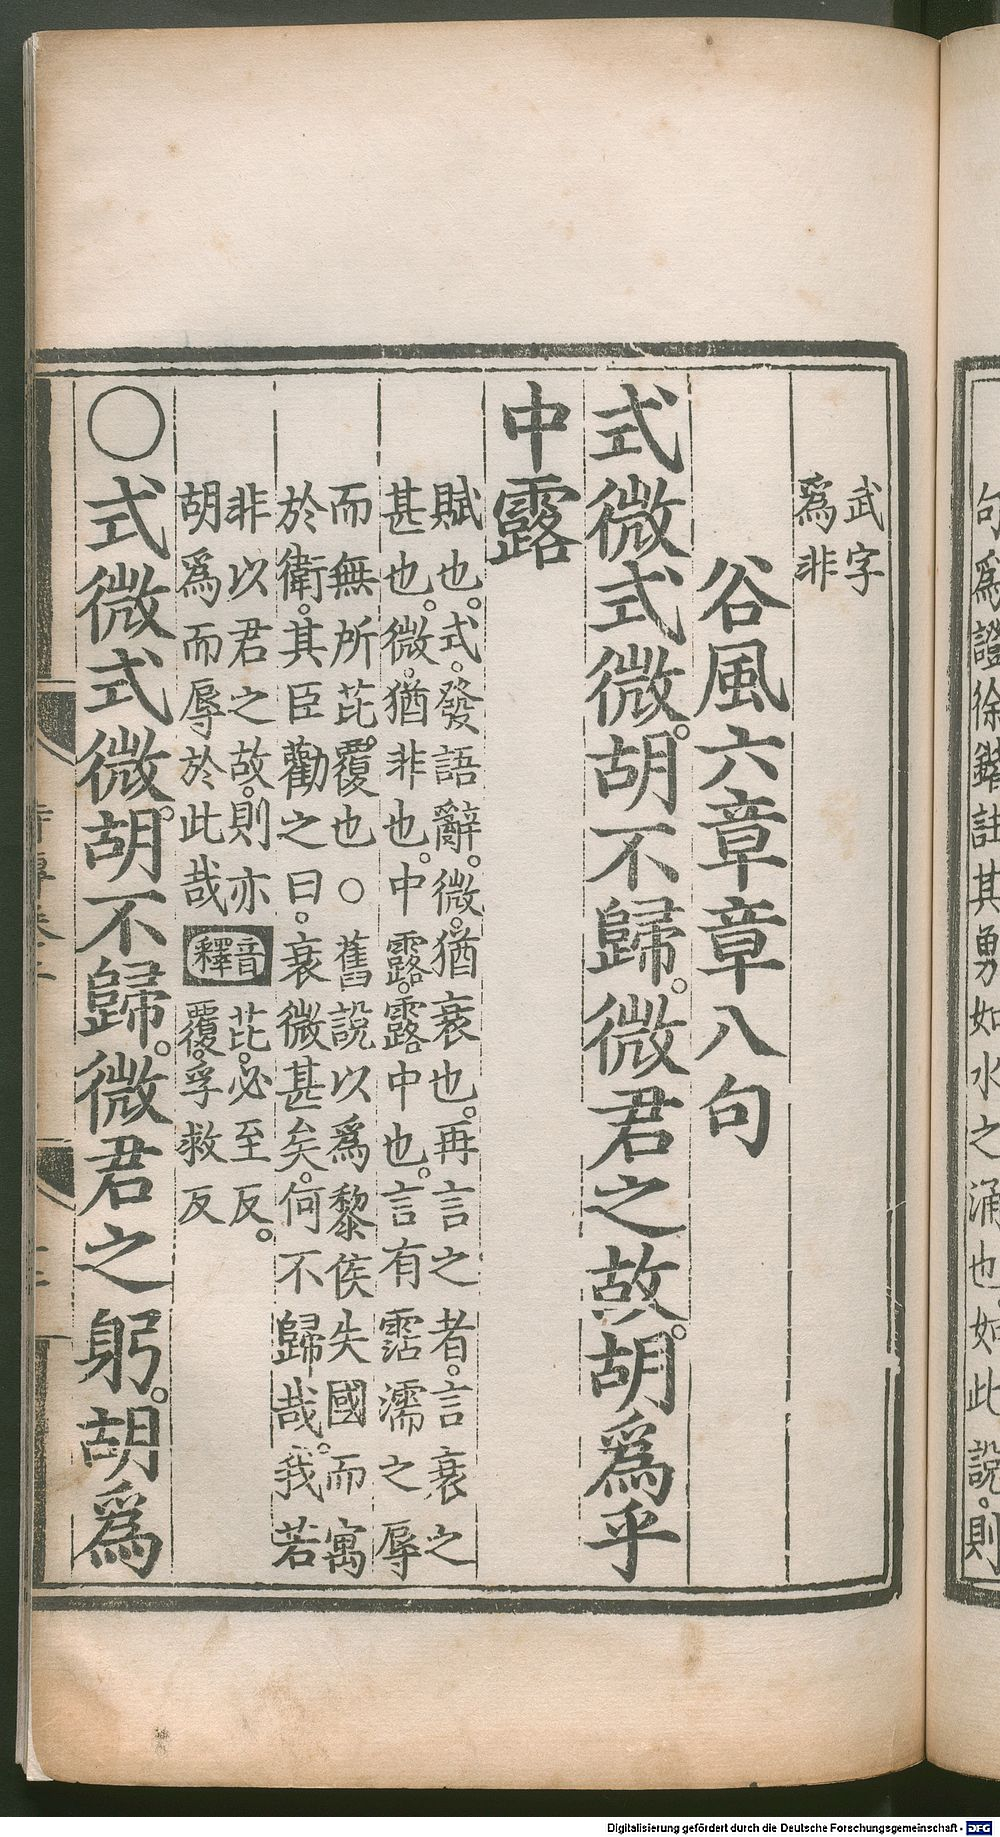 武字
爲非
谷風六章章八句
式微式微。胡不歸。微君之故。胡爲乎
中露
賦也。式。發語辭。微。猶衰也。再言之者。言衰之
甚也。微。猶非也。中露。露中也。言有霑濡之辱
而無所芘覆也○舊說以爲黎侯失國而寓
於衛。其臣勸之曰。衰微甚矣。何不歸哉。我若
非以君之故。則亦
胡爲而辱於此哉
音釋
芘。必至反。
覆。孚救反
○式微式微。胡不歸。微君之躬。胡爲
句爲證徐鍇註其勇如水之涌也如此說。則
Digitalisierung gefördert durch die Deutsche Forschungsgemeinschaft - DFG